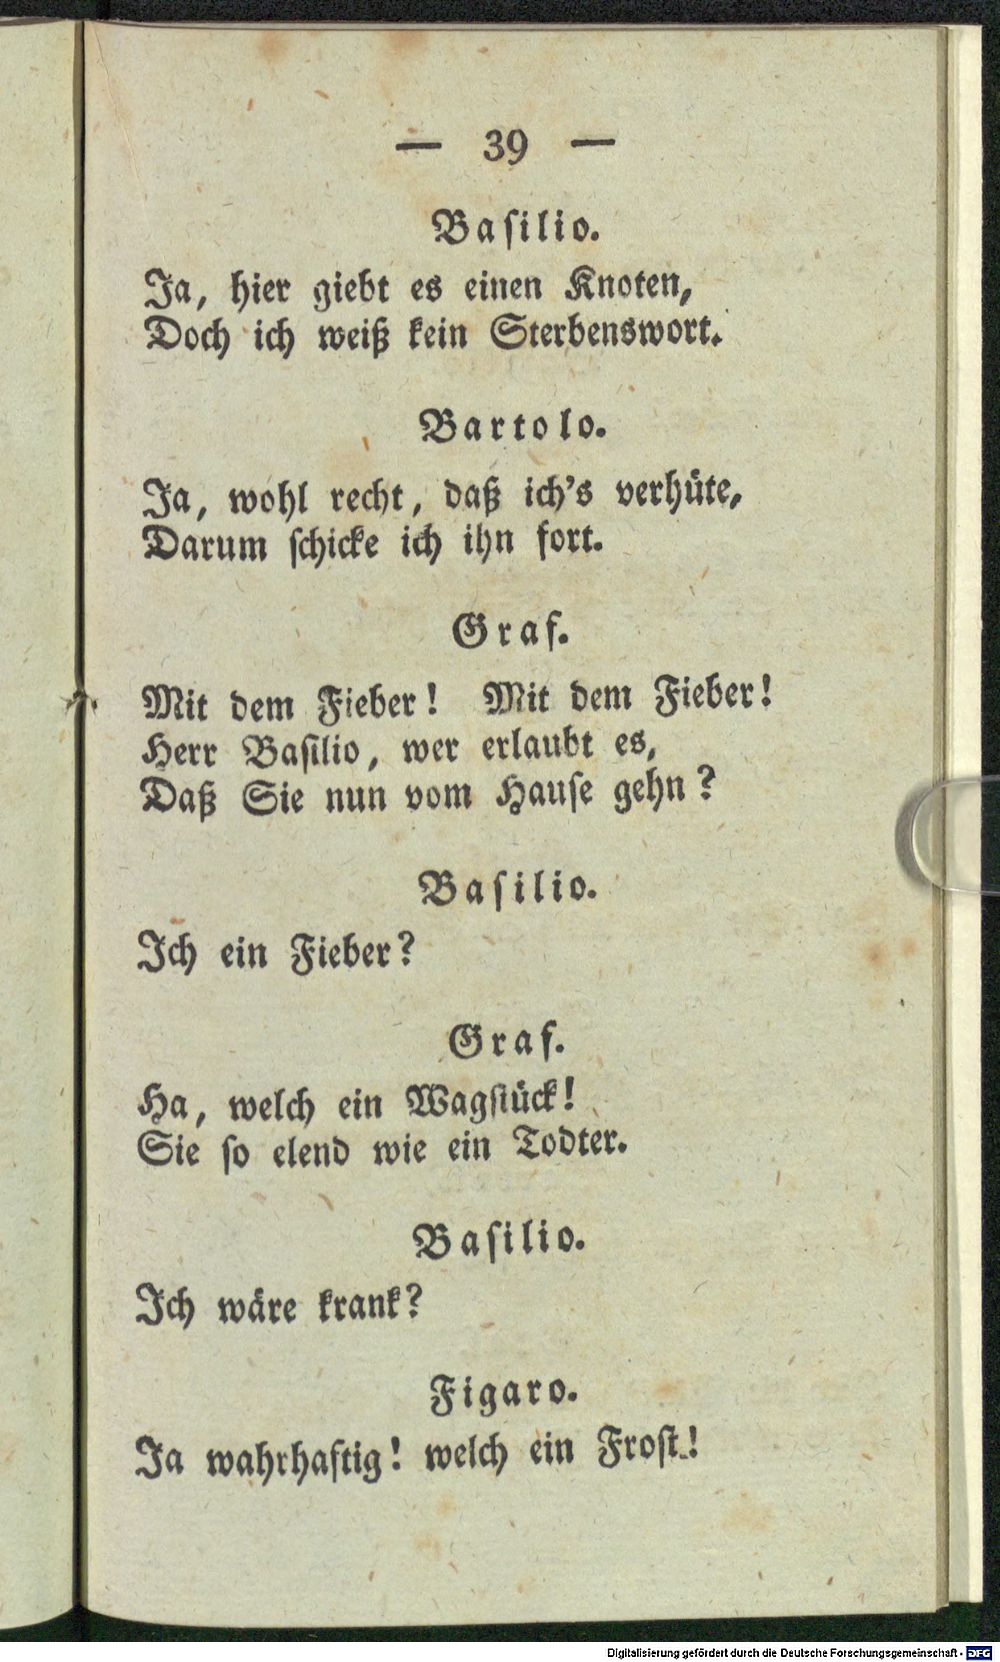 — 39 —
Basilio.
Ja, hier giebt es einen Knoten,
Doch ich weiß kein Sterbenswort.
Bartolo.
Ja, wohl recht, daß ich's verhüte,
Darum schicke ich ihn fort.
Graf.
Mit dem Fieber! Mit dem Fieber!
Herr Basilio, wer erlaubt es,
Daß Sie nun vom Hause gehn?
Basilio.
Ich ein Fieber?
Graf.
Ha, welch ein Wagstück!
Sie so elend wie ein Todter.
Basilio.
Ich wäre krank?
Figaro.
Ja wahrhaftig! welch ein Frost!
Digitalisierung gefördert durch die Deutsche Forschungsgemeinschaft - DFG